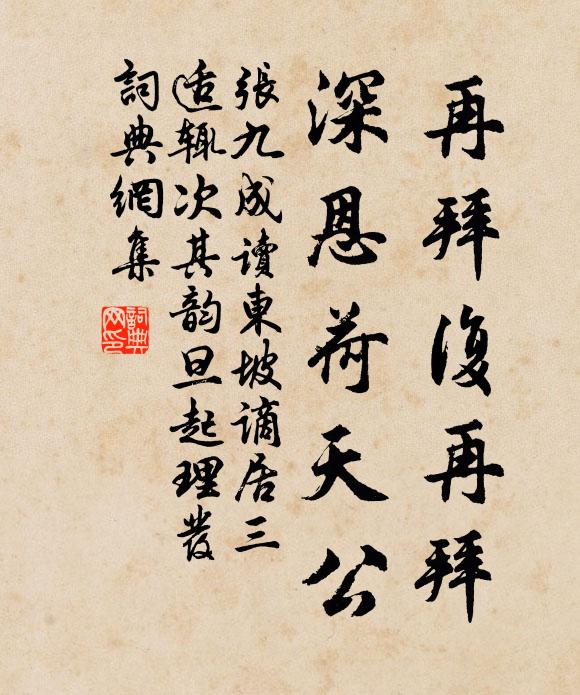 再拜復再拜
深恩荷天公
張九成讀東坡謫居三
适輒次其韵旦起理發
詞典網集
詞典网印